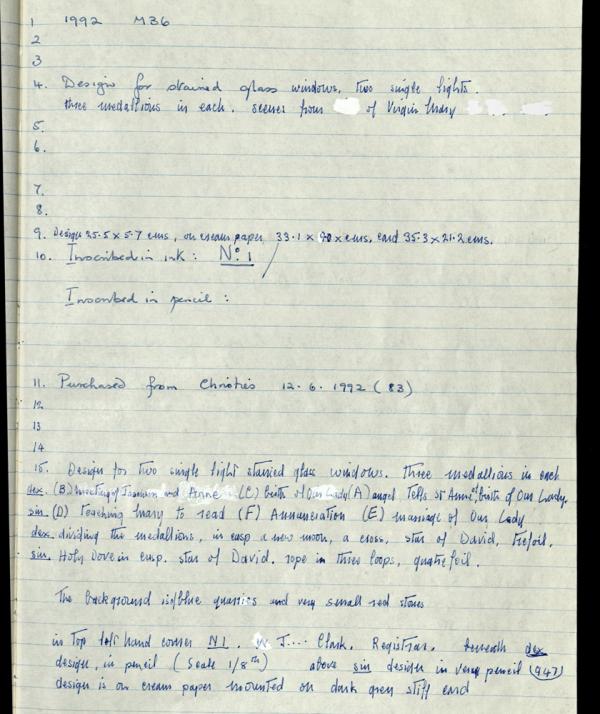 1 1992 M36
2
3
4. Designs for stained glass windows, two single lights.
three medallions in each. scenes from of Virgin Mary
5.
6.
7.
8.
9. Design 25.5 x 5.7 cms, on cream paper 33.1 x cms, card 35.3 x 21.2 cms.
10. Inscribed in ink: No. 1 /
Inscribed in pencil:
11. Purchased from Christies 12.6.1992 (83)
12
13
14
15. Designs for two single light stained glass windows. three medallions in each
dex. (B) meeting of Joachim and Anne (C) birth of Our Lady (A) angel Tells St Anne birth of Our Lady.
sin. (D) Teaching Mary to read (F) Annunciation (E) marriage of Our Lady
dex. dividing the medallions, in cusp a new moon, a cross, star of David, trefoil.
sin. Holy Dove in cusp. star of David. rope in three loops, quatrefoil.
The background is/blue quarries and very small red stones
in Top left hand corner N1. J.... Clark. Registrar. beneath dex
design, in pencil (Scale 1/8th) above sin design in pencil (947)
design is on cream paper mounted on dark green stiff card